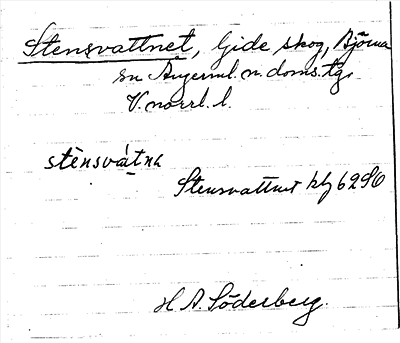 Stensvattnet, Gide skog, Björna
sn Ångerml. n. doms. tg.
V. norrl. l.
stènsvátna
Stensvattnet hfj 6290
H. A. Söderberg.